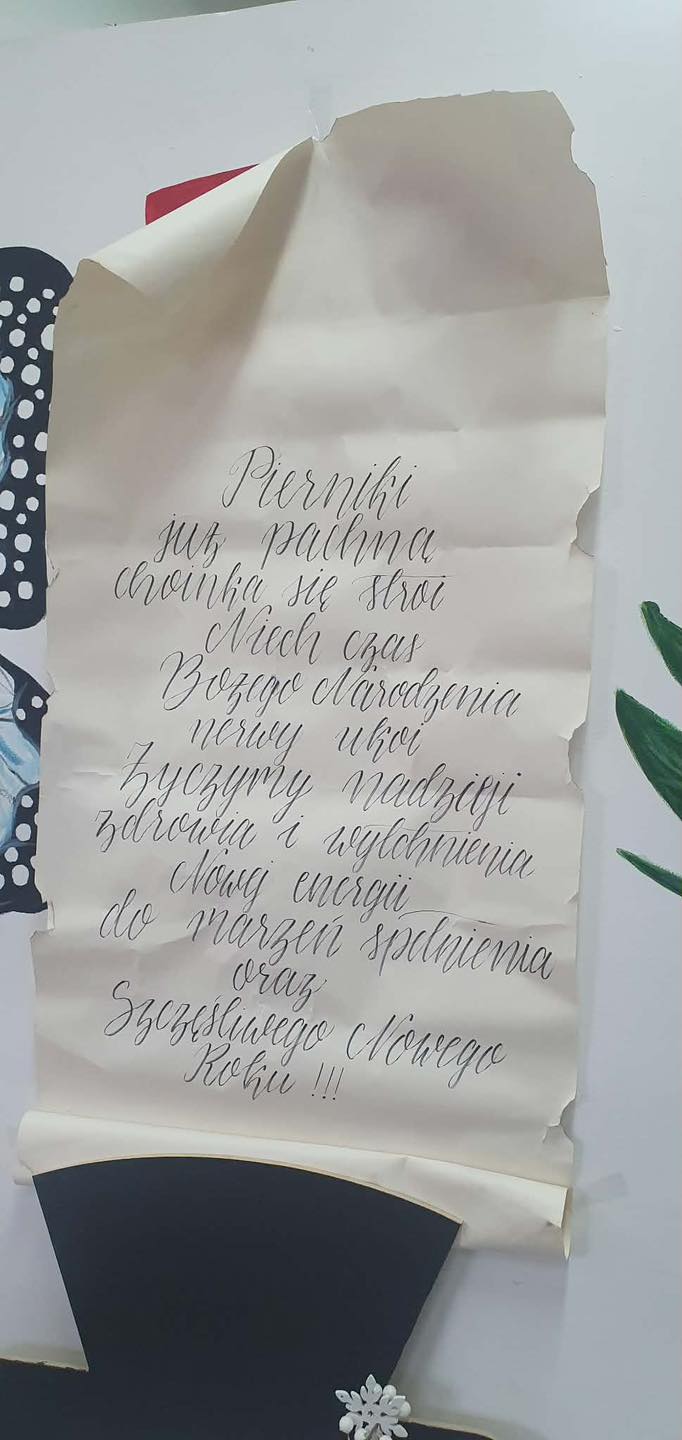 Pierniki
już pachną
choinka się stroi
Niech czas
Bożego Narodzenia
nerwy ukoi
Życzymy nadzieji
zdrowia i wytchnienia
Nowej energii
do marzeń spełnienia
oraz
Szczęśliwego Nowego
Roku !!!